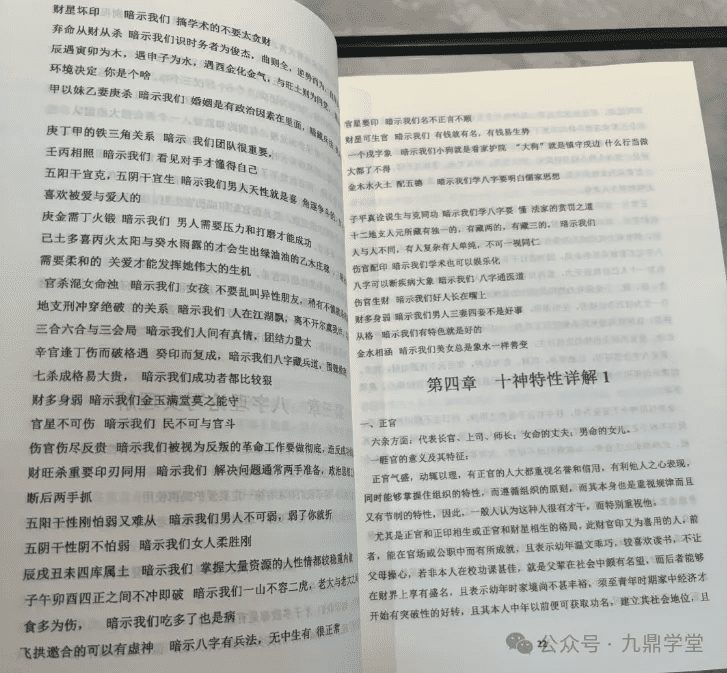 财星坏印 暗示我们 搞学术的不要太贪财
弃命从财从杀 暗示我们识时务者为俊杰，曲则全，逆势而
辰遇寅卯为木，遇申子为水，遇酉金化金气，与旺土则为
环境决定 你是个啥
甲以妹乙妻庚杀 暗示我们 婚姻是有政治因素在里面，
庚丁甲的铁三角关系 暗示 我们团队很重要，
壬丙相照 暗示我们 看见对手才懂得自己
五阳干宜克，五阴干宜生 暗示我们男人天性就是喜
喜欢被爱与爱人的
庚金需丁火锻 暗示我们 男人需要压力和打磨才能成功
己土多喜丙火太阳与癸水雨露的才会生出绿油油的乙木庄
需要柔和的 关爱才能发挥她伟大的生机
官杀混女命浊 暗示我们 女孩 不要乱叫异性朋友，稍有不慎
地支刑冲穿绝破 的关系 暗示我们 人在江湖飘，离不开尔虞
三合六合与三会局 暗示我们人间有真情，团结力量大
辛官逢丁伤而破格遇 癸印而复成，暗示我们八字藏兵道，
七杀成格易大贵， 暗示我们成功者都比较狠
财多身弱 暗示我们金玉满堂莫之能守
官星不可伤 暗示我们 民不可与官斗
伤官伤尽反贵 暗示我们被视为反叛的革命工作要做彻底，
财旺杀重要印刃同用 暗示我们 解决问题通常两手准备，政治
断后两手抓
五阳干性刚怕弱又难从 暗示我们男人不可弱，弱了你就折
五阴干性阴不怕弱 暗示我们女人柔胜刚
辰戌丑未四库属土 暗示我们 掌握大量资源的人性情都较稳重
子午卯酉四正之间不冲即破 暗示我们一山不容二虎，老大与老大
食多为伤， 暗示我们吃多了也是病
飞拱邀合的可以有虚神 暗示八字有兵法，无中生有 很正常
官星要印 暗示我们名不正言不顺
财星可生官 暗示我们 有钱就有名，有钱易生势
一个戌字象 暗示我们小狗就是看家护院 “大狗”就是镇守戍边 什么行当做
大都了不得
金木水火土 配五德 暗示我们学八字要明白儒家思想
子平真诠说生与克同功 暗示我们学八字要 懂 法家的赏罚之道
十二地支人元所藏有独一的，有藏两的，有藏三的， 暗示我们
人与人不同，有人复杂有人单纯，不可一视同仁
伤官配印 暗示我们学术也可以娱乐化
八字可以断疾病大象 暗示我们 八字通医道
伤官生财 暗示我们好人长在嘴上
财多身弱 暗示我们男人三妻四妾不是好事
从格 暗示我们有特色就是好的
金水相涵 暗示我们美女总是象水一样善变
第四章 十神特性详解 1
一、正官
六亲方面：代表长官、上司、师长；女命的丈夫；男命的女儿。
一旺官的意义及其特征：
正官气盛，动辄以理，有正官的人大都重视名誉和信用，有利他人之心表现，
同时能够掌握住组织的特性，而遵循组织的原则，而其本身也是重视规律而且
又有节制的特性，因此，一般人认为这种人很有才干，而特别重视他。
尤其是正官和正印相生或正官和财星相生的格局，此财官印又为喜用的人，前
者，能在官场或公职中而有所成就，且表示幼年温文乖巧，较喜欢读书，不让
父母操心，若非本人在校功课甚佳，就是父辈在社会中颇有名望，而后者能够
在财界上享有盛名，且表示幼年时家境尚不甚丰裕，须至青年时期家中经济才
开始有突破性的好转，且其本人中年以前便可获取功名，建立其社会地位，且
公众号·九鼎学堂